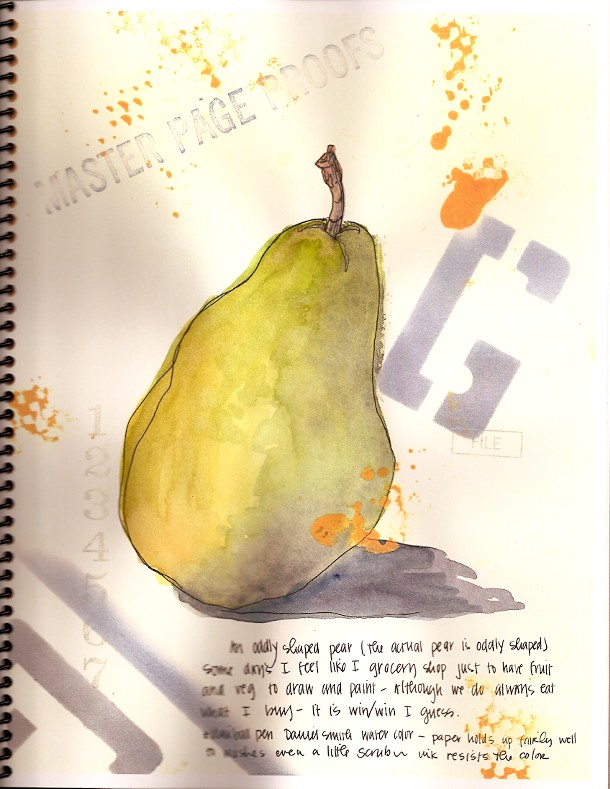 MASTER PAGE PROOFS
G
FILE
1
2
3
4
5
6
7
An oddly shaped pear (the actual pear is oddly shaped)
some days I feel like I grocery shop just to have fruit
and veg to draw and paint - Although we do always eat
what I buy - it is win/win I guess.
ball pen Daniel Smith water color - paper holds up fairly well
to washes even a little scrubbn ink resists the color